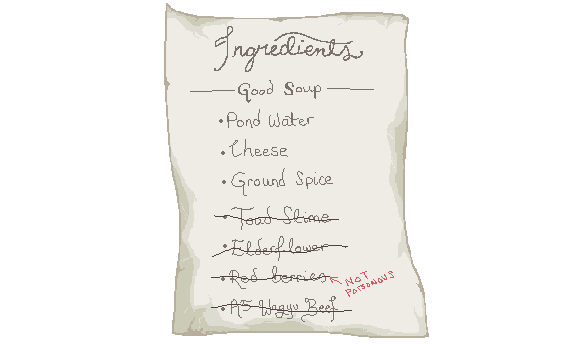 Ingredients
Good Soup
• Pond Water
• Cheese
• Ground Spice
• Toad Slime
• Elderflower
• Red berries NOT
POISONOUS
• A5 Wagyu Beef